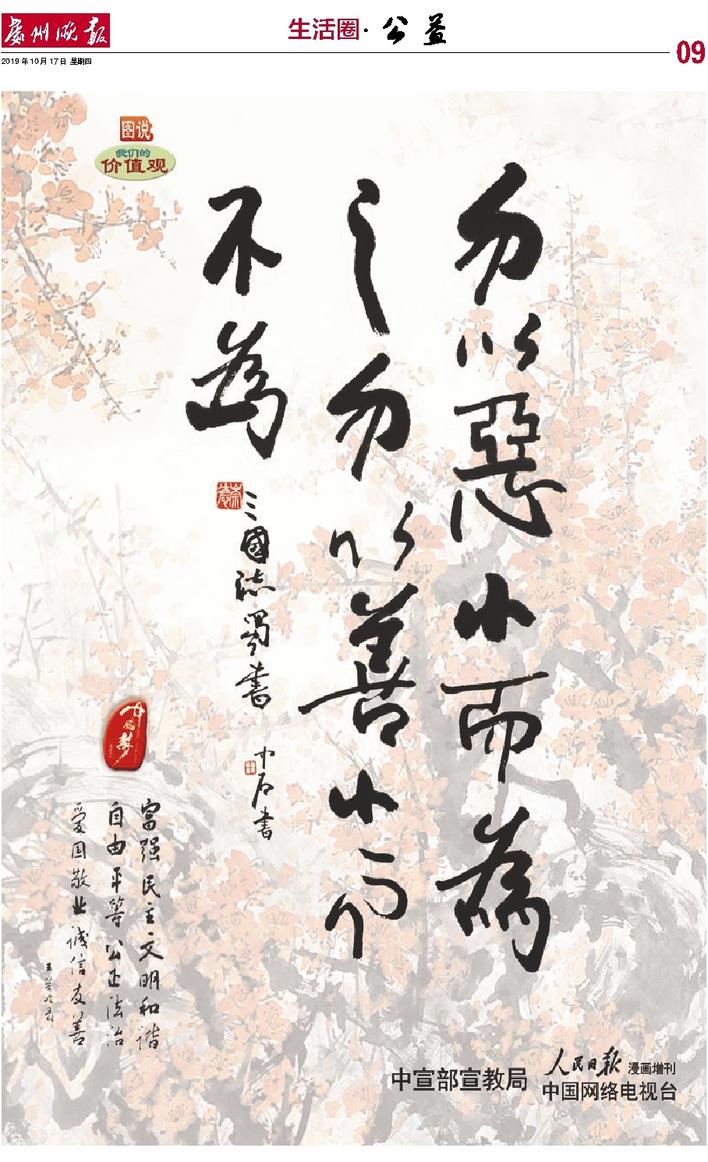 處州晚报
2019年10月17日 星期四
生活圈·公益
09
图说
我们的
价值观
勿以惡小而為
之勿以善小而
不為
三國志蜀書
中石書
中国梦
富强民主文明和谐
自由平等公正法治
爱国敬业诚信友善
中宣部宣教局
人民日报 漫画增刊
中国网络电视台